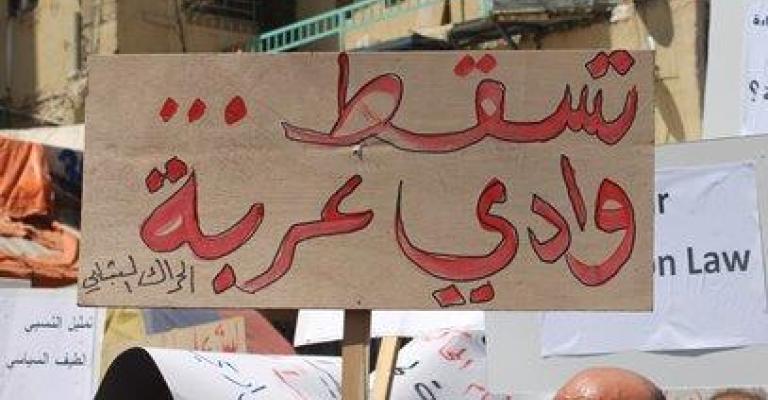 تسقط ...
وادي عربة
الحراك الشبابي
on Law
تمثيل النسبي
الطيف السياسي